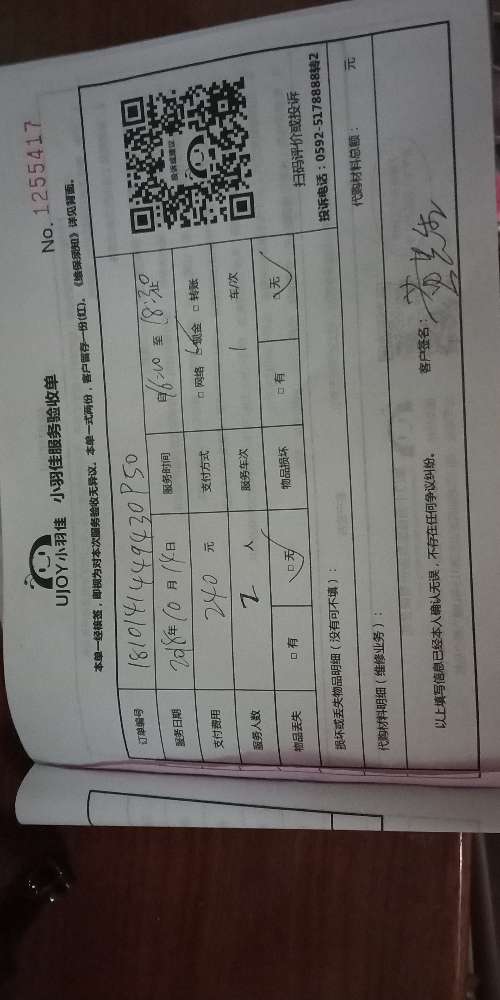 No. 1255417
UJOY小羽佳 小羽佳服务验收单
本单一经核签，即视为对本次服务验收无异议。本单一式两份，客户留存一份(红)。《维保须知》详见背面。
订单编号 18101414494430P50
服务日期 2018年10月14日 服务时间 自16:00至18:30止
支付费用 240元 支付方式 □网络 ☑现金 □转账
服务人数 2人 服务车次 1 车/次
物品丢失 □有 ☑无 物品损坏 □有 ☑无
投诉或建议
扫码评价或投诉
投诉电话：0592-5178888转2
损坏或丢失物品明细（没有可不填）：
代购材料明细（维修业务）： 代购材料总额： 元
以上填写信息已经本人确认无误，不存在任何争议纠纷。 客户签名：